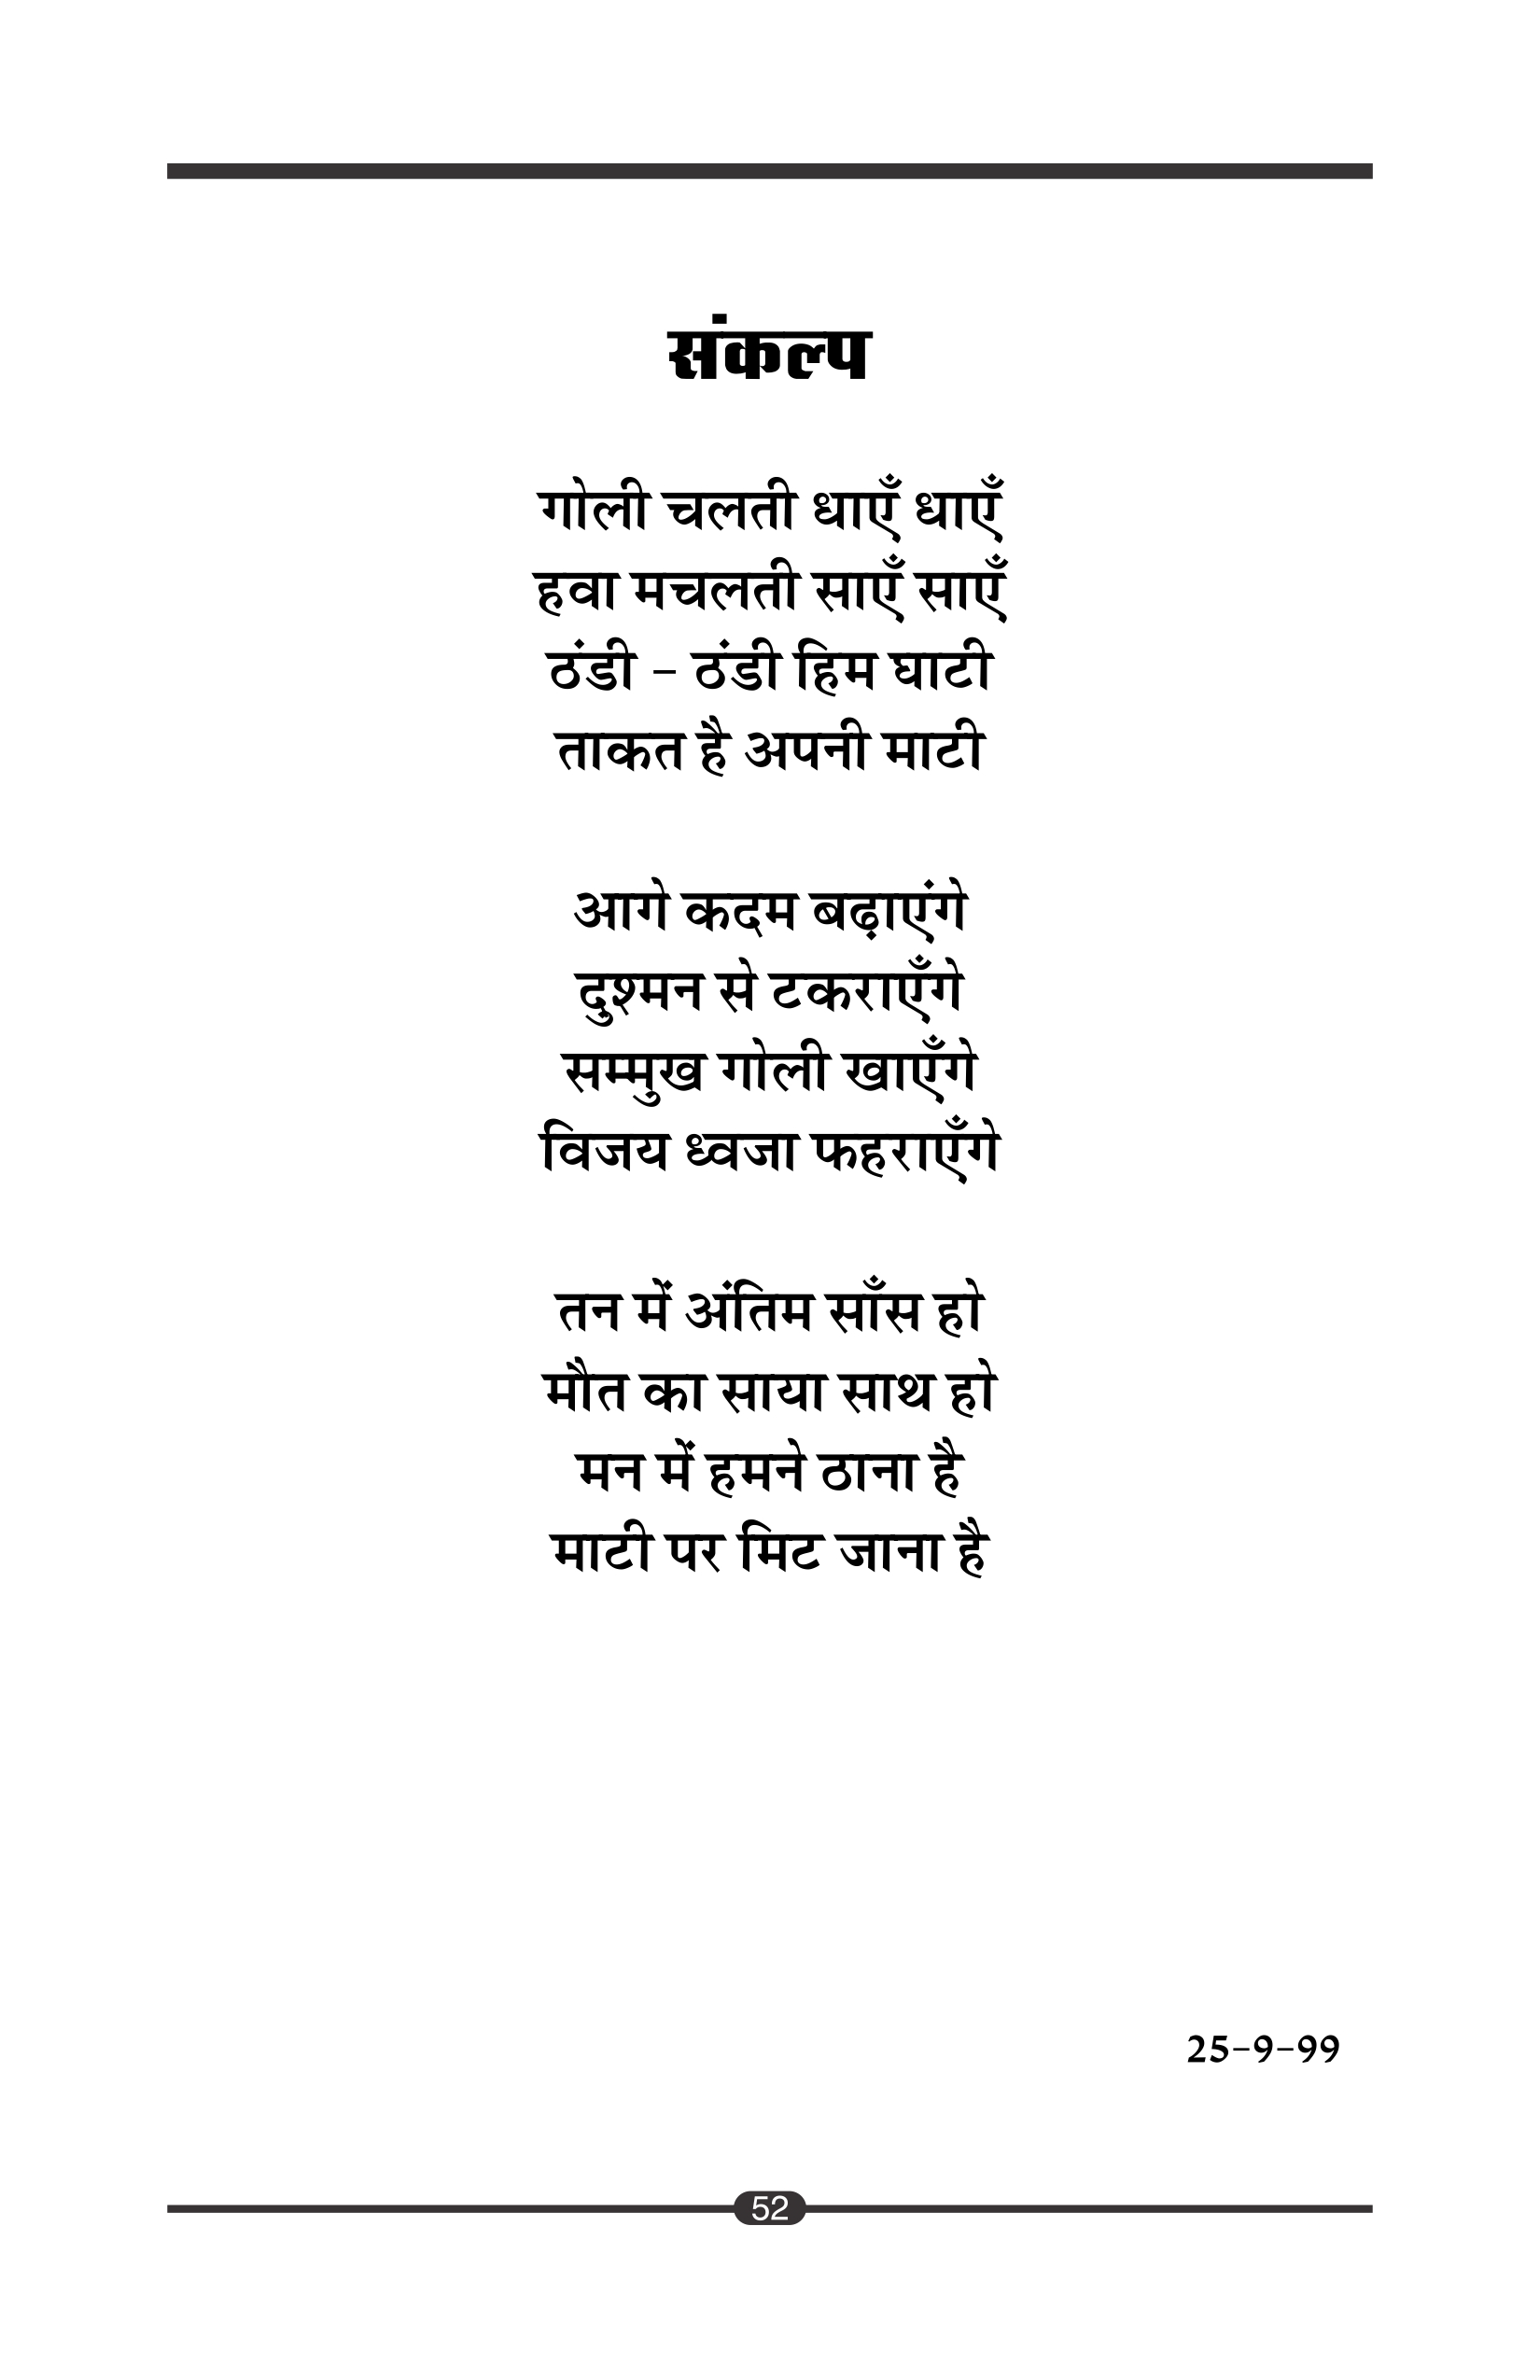 संकल्प
गोली चलती धाएँ धाएँ
हवा मचलती साएँ साएँ
ठंडी - ठंडी हिम घाटी
ताकत है अपनी माटी
आगे कदम बढ़ाएंगे
दुश्मन से टकराएँगे
सम्मुख गोली खाएँगे
विजय ध्वजा फहराएँगे
तन में अंतिम साँस हो
मौत का साया साथ हो
मन में हमने ठाना है
माटी पर मिट जाना है
25-9-99
52